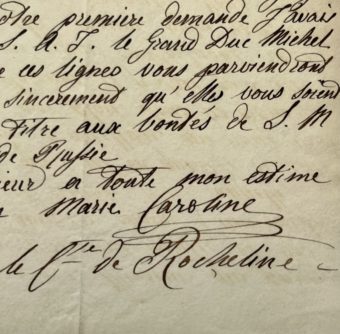 otre première demande j'avais
S. A. I. le Grand Duc Michel
e ces lignes vous parviendront
sincerement qu'elles vous soient
titre aux bontés de S. M
de Russie
ieur en toute mon estime
Marie Caroline
le Cte de Rocheline